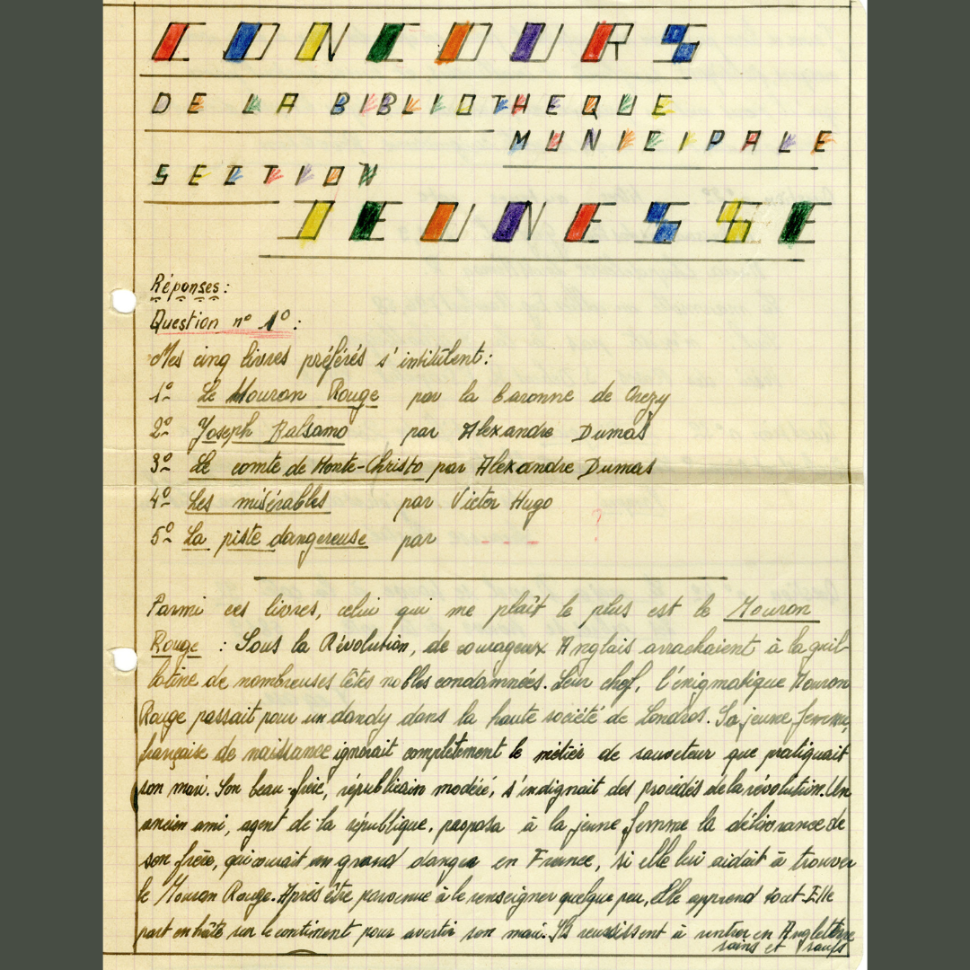 CONCOURS
DE LA BIBLIOTHEQUE
MUNICIPALE
SECTION
JEUNESSE
Réponses:
Question n° 1°:
Mes cinq livres préférés s'intitulent:
1° Le Mouron Rouge par la baronne de Orczy
2° Joseph Balsamo par Alexandre Dumas
3° Le comte de Monte-Christo par Alexandre Dumas
4° Les misérables par Victor Hugo
5° La piste dangereuse par ?
Parmi ces livres, celui qui me plaît le plus est le Mouron
Rouge : Sous la Révolution, de courageux Anglais arrachaient à la guil
lotine de nombreuses têtes nobles condamnées. Leur chef, l'énigmatique Mouron
Rouge passait pour un dandy dans la haute société de Londres. Sa jeune femme,
française de naissance ignorait complètement le métier de sauveteur que pratiquait
son mari. Son beau-frère, républicain modéré, s'indignait des procédés de la révolution. Un
ancien ami, agent de la république, proposa à la jeune femme la délivrance de
son frère, qui courait un grand danger en France, si elle lui aidait à trouver
le Mouron Rouge. Après être parvenue à le renseigner quelque peu, elle apprend tout. Elle
part en hâte sur le continent pour avertir son mari. Ils reussissent à rentrer en Angleterre
sains et saufs